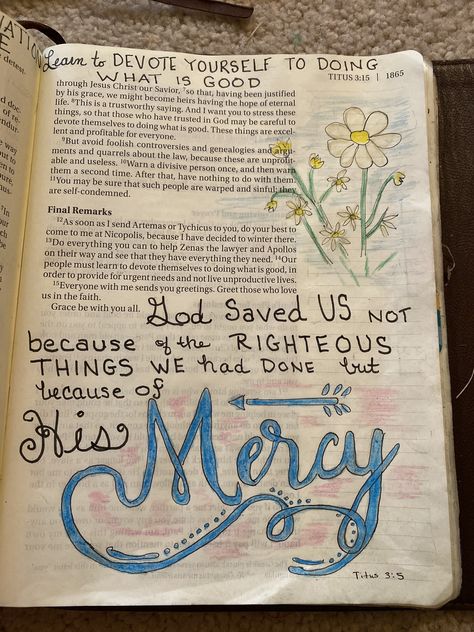 Learn to DEVOTE YOURSELF TO DOING
WHAT IS GOOD
TITUS 3:15 | 1865
through Jesus Christ our Savior, ⁷so that, having been justified
by his grace, we might become heirs having the hope of eternal
life. ⁸This is a trustworthy saying. And I want you to stress these
things, so that those who have trusted in God may be careful to
devote themselves to doing what is good. These things are excel-
lent and profitable for everyone.
⁹But avoid foolish controversies and genealogies and argu-
ments and quarrels about the law, because these are unprofit-
able and useless. ¹⁰Warn a divisive person once, and then warn
them a second time. After that, have nothing to do with them.
¹¹You may be sure that such people are warped and sinful; they
are self-condemned.
Final Remarks
¹²As soon as I send Artemas or Tychicus to you, do your best to
come to me at Nicopolis, because I have decided to winter there.
¹³Do everything you can to help Zenas the lawyer and Apollos
on their way and see that they have everything they need. ¹⁴Our
people must learn to devote themselves to doing what is good, in
order to provide for urgent needs and not live unproductive lives.
¹⁵Everyone with me sends you greetings. Greet those who love
us in the faith.
Grace be with you all.
God Saved US NOT
because of the RIGHTEOUS
THINGS WE had DONE but
because of
His
Mercy
Titus 3:5